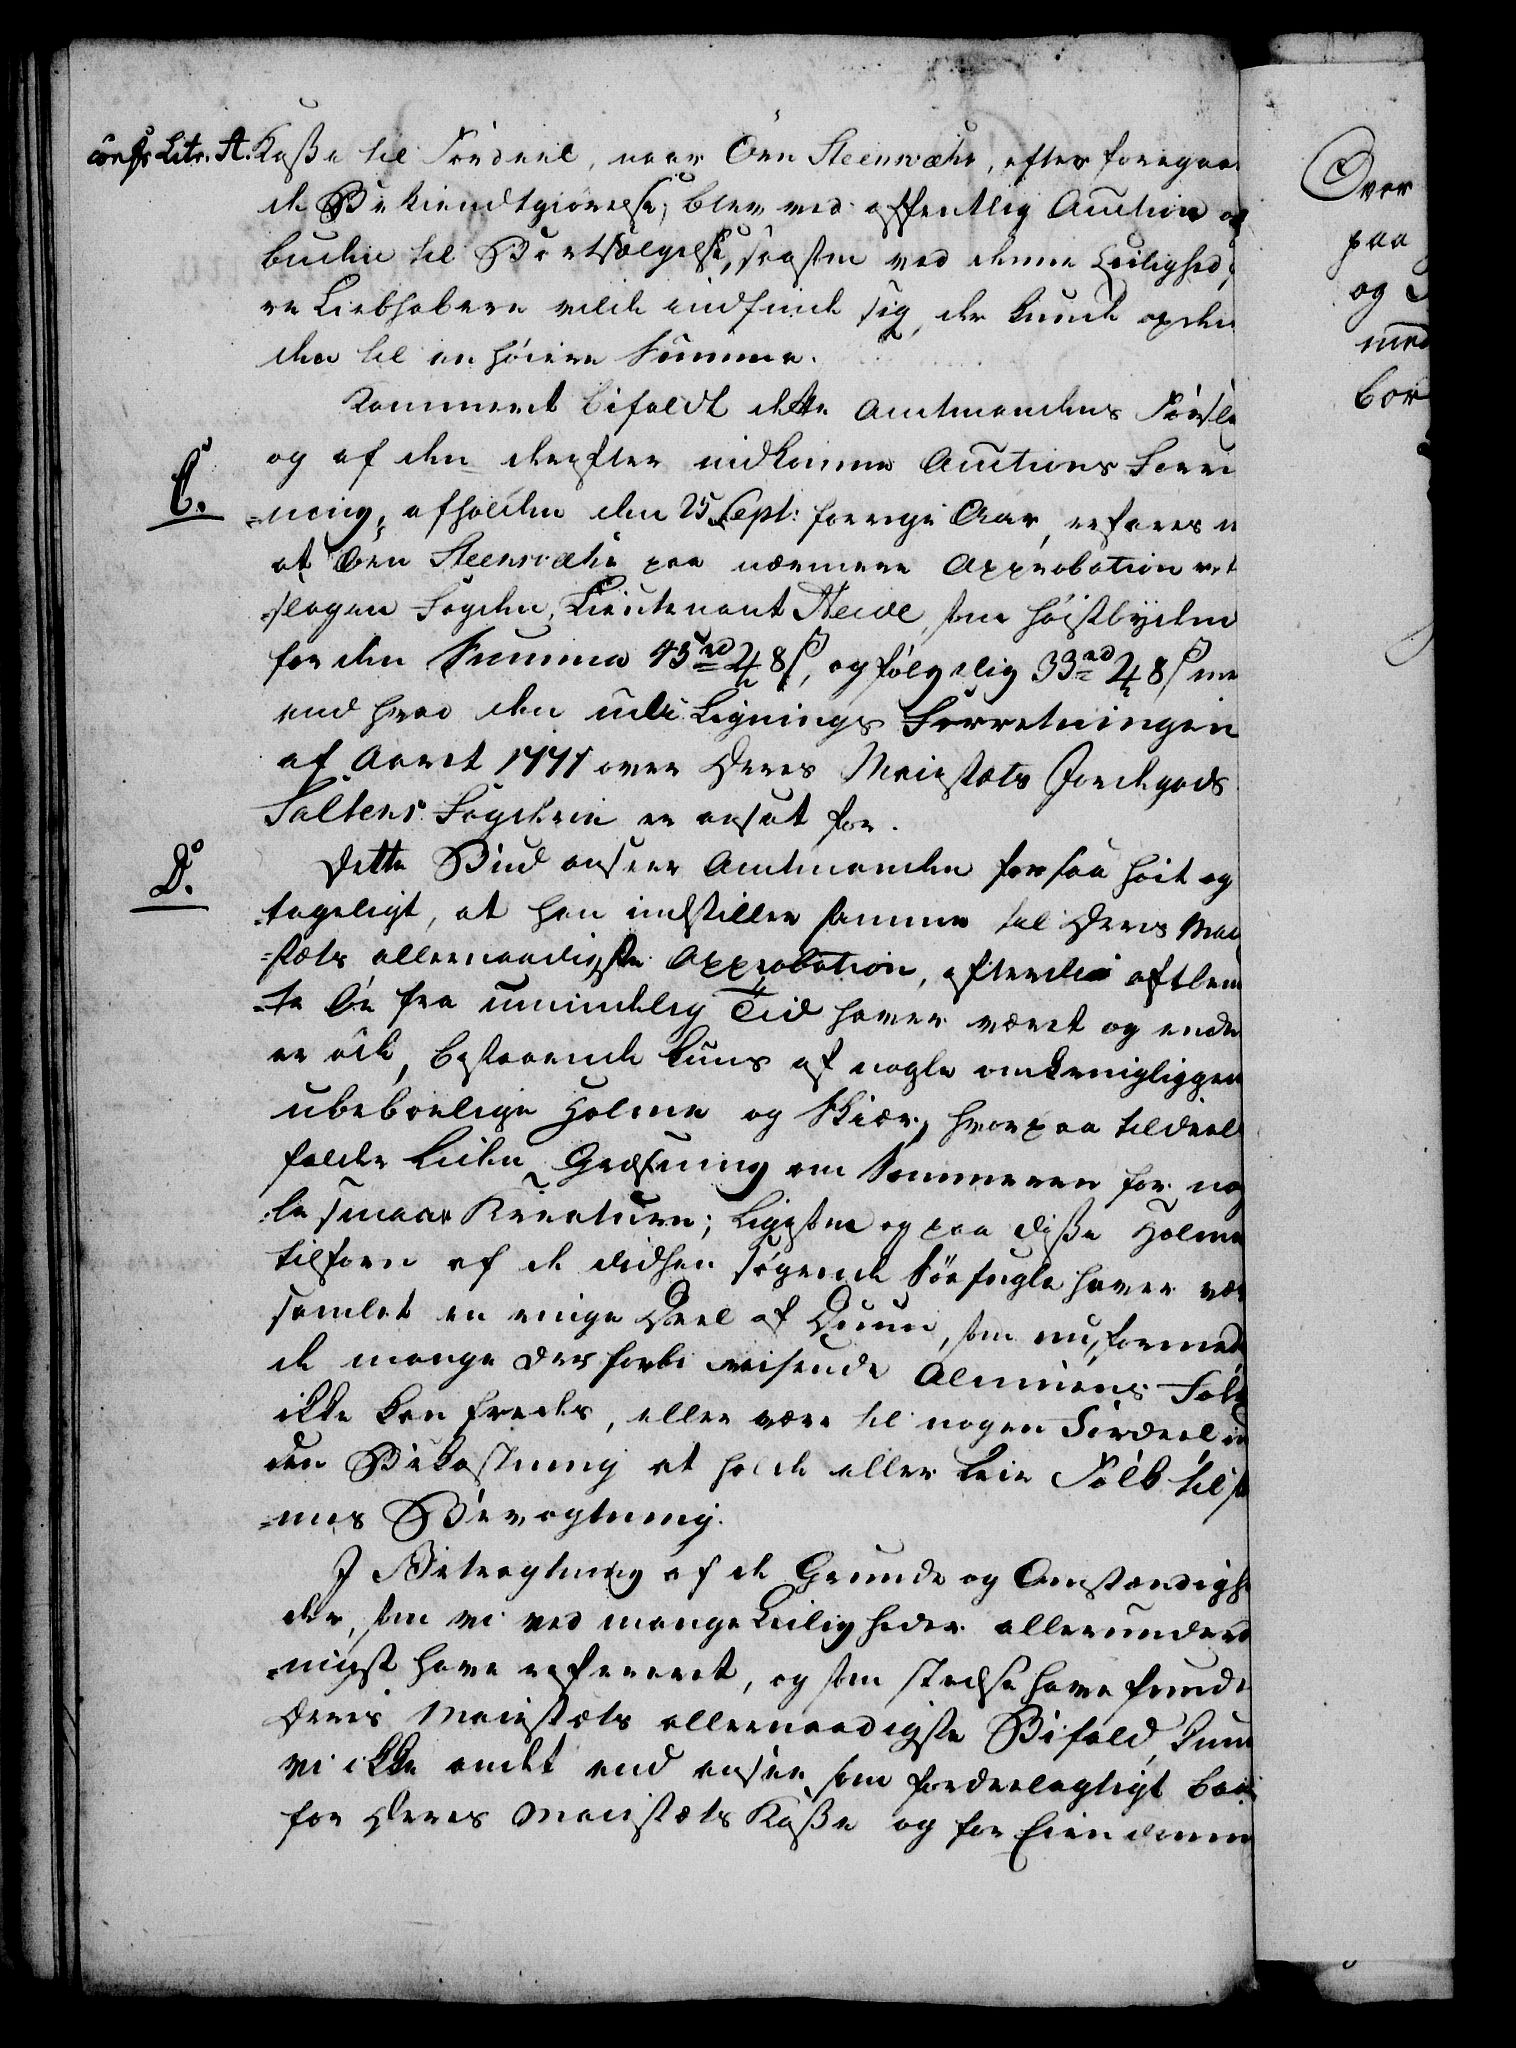 confr Litr. A. Kaße til Fordeel, naar Øen Steensvæhr, efter foregaaen
de Bekiendtgiørelse, blev ved offentlig Auction op
buden til Bortsælgelse, saasom ved denne Leilighed fle
re Liebhabere vilde indfinde sig, der kunde opdri
den til en høiere Summa.
Kammeret bifaldt dette Amtmandens Forsla
C. og af den derefter indkomne Auctions Forre
-ning, afholden den 25 Sept: forrige Aar, erfares
at Øen Steensvæhr paa nærmere Approbation er
-slagen Fogden, Lieutenant Heide, som høistbydende
for den Summa 43 rd 24 8 ß, og følgelig 33 rd 24 8 ß me
end hvad den udi Lignings Forretningen
af Aaret 1771 over Deres Maiestæts Jordegods
Saltens Fogderie er ansat for.
D. Dette Bud anseer Amtmanden for saa høit og
-tageligt, at han indstiller samme til Deres Mai
-stæts allernaadigste Approbation, efterdi oftben
-te Øe fra umindelig Tid haver været og endnu
er øde, bestaaende kuns af nogle omkringliggen
ubeboelige Holme og Skiær, hvorpaa tildeels
falder liden Græsning om Sommeren for nog
-le smaae Kreature; ligesom og paa diße Holme
tilforn af de didhen søgende Søefugle haver vær
samlet en ringe Deel af Duun, som nu, formed
de mange der forbi reisende Almues Folk
ikke kan fredes, eller være til nogen Fordeel i
den Bekostning at holde eller leie Folk til sa
-mes Bevogtning.
I Betragtning af de Grunde og Omstændighe
der, som vi ved mange Leiligheder allerunderd
-nigst have refereret, og som stedse have funde
Deres Maiestæts allernaadigste Bifald, kun
vi ikke andet end ansee som fordeelagtigt baa
for Deres Maiestæts Kaße og for Eiendomme
Over
paa
og
med
bor